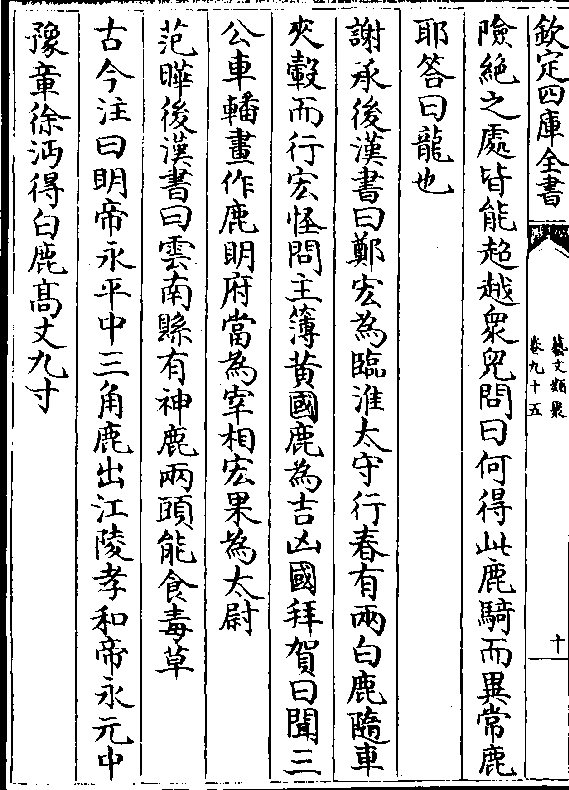 欽定四庫全書
藝文類聚
卷九十五
十
險絶之處皆能超越衆兒問曰何得此鹿騎而異常鹿
耶答曰龍也
謝承後漢書曰鄭宏為臨淮太守行春有兩白鹿隨車
夾轂而行宏怪問主簿黄國鹿為吉凶國拜賀曰聞三
公車轓畫作鹿明府當為宰相宏果為太尉
范曄後漢書曰雲南縣有神鹿兩頭能食毒草
古今注曰明帝永平中三角鹿出江陵孝和帝永元中
豫章徐沔得白鹿髙丈九寸